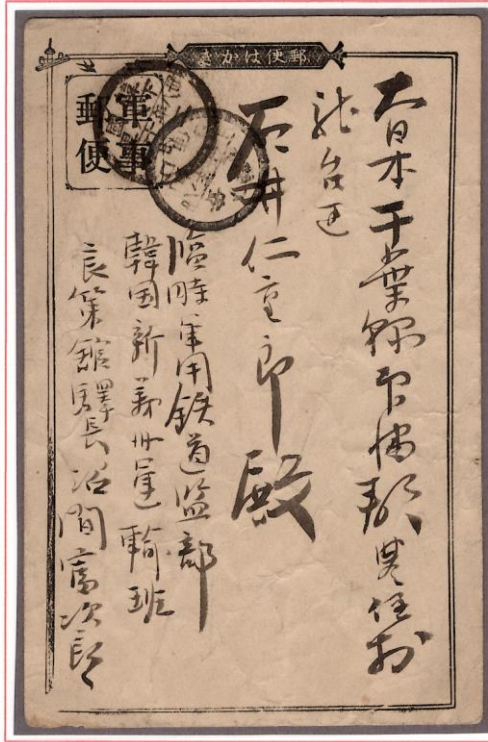 郵便はかき
軍事
郵便
大日本千葉縣印旛郡豊住村
龍台
石井仁重郎殿
臨時軍用鉄道監部
韓国新義州運輸班
良策館驛長沼間富次郎